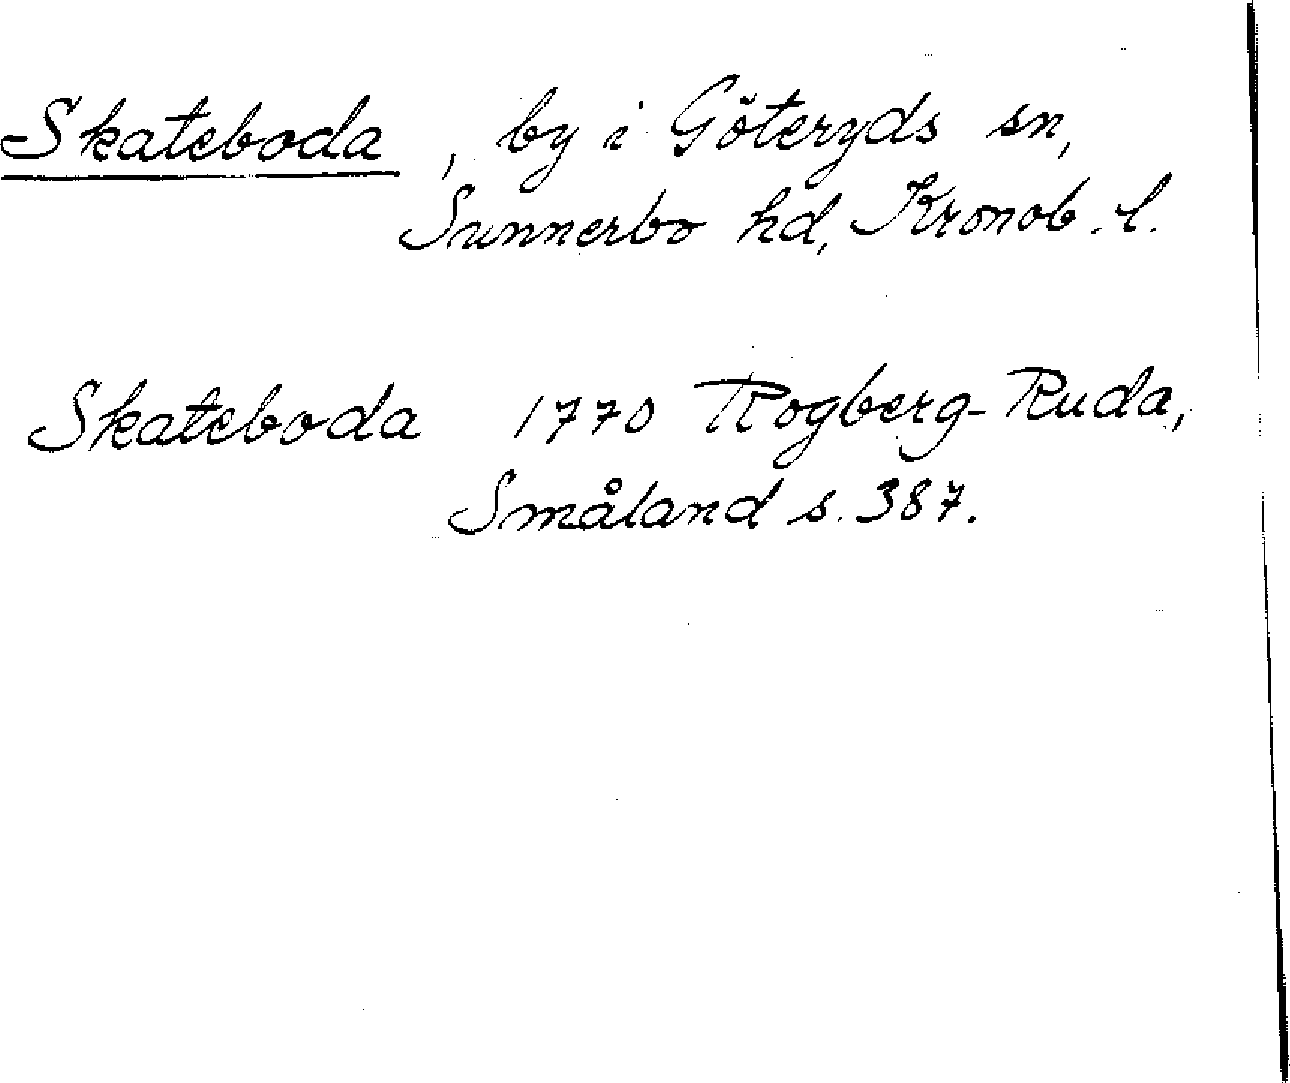 Skateboda, by i Göteryds sn,
Sunnerbo hd, Kronob. l.
Skateboda 1770 Rogberg-Ruda,
Småland s. 387.